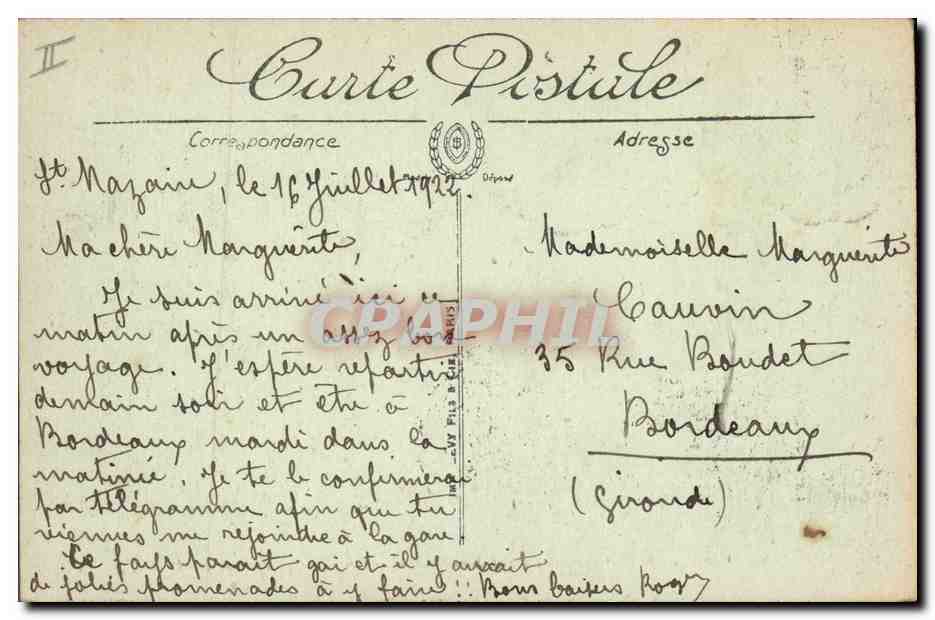 II
Carte Postale
Correspondance
Adresse
Déposé
St. Nazaire, le 16 Juillet 1922.
Ma chère Marguerite,
Je suis arrivé ici ce
matin après un assez bon
voyage. J'espère repartir
demain soir et être à
Bordeaux mardi dans la
matinée. Je te le confirmerai
par télégramme afin que tu
viennes me rejoindre à la gare
Ce pays parait gai et il y aurait
de jolies promenades à y faire!! Bons baisers Roger
Mademoiselle Marguerite
Cauvin
35 Rue Boudet
Bordeaux
(Gironde)
LEVY FILS & CIE, PARIS
CPAPHIL